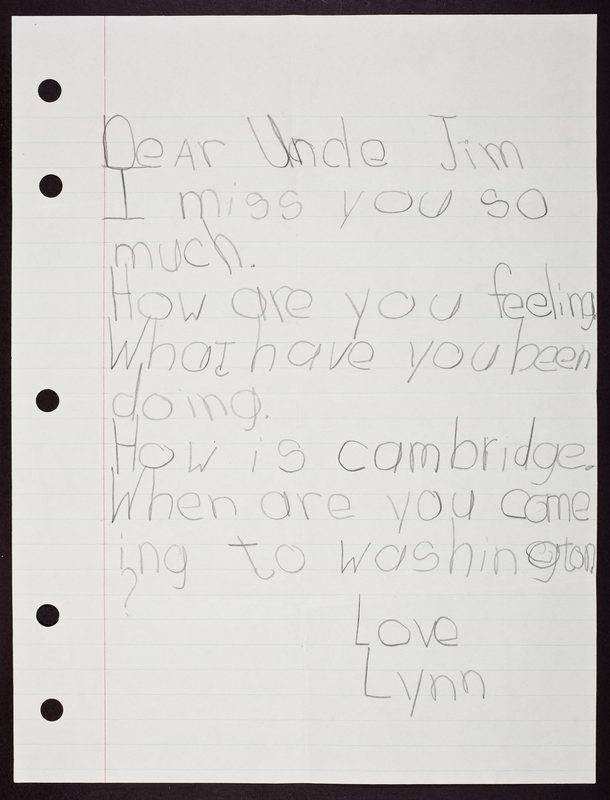 Dear Uncle Jim
I miss you so
much.
How are you feeling
What have you been
doing.
How is cambridge.
When are you come
ing to washington
?
Love
Lynn